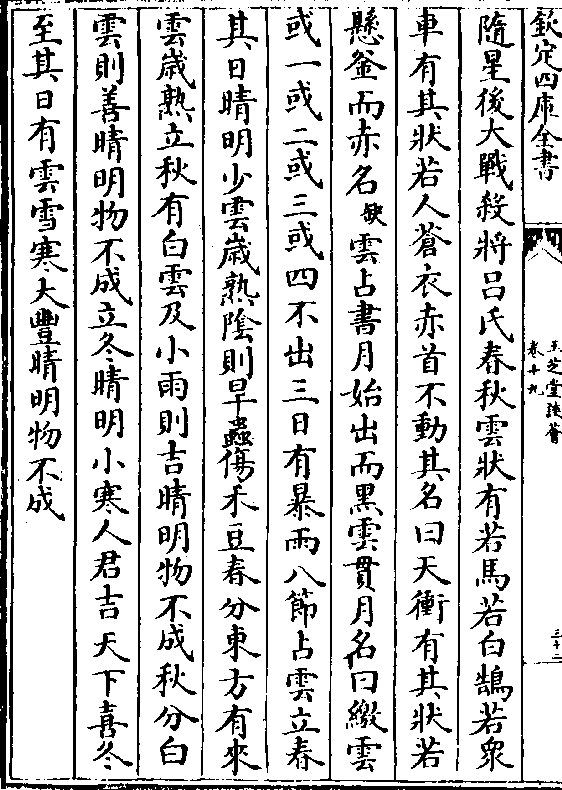 欽定四庫全書
玉芝堂談薈
卷十九
三十二
隨星後大戰殺將呂氏春秋雲狀有若馬若白鵠若衆
車有其狀若人蒼衣赤首不動其名曰天衝有其狀若
懸釜而赤名缺雲占書月始出而黑雲貫月名曰繳雲
或一或二或三或四不出三日有暴雨八節占雲立春
其日晴明少雲歲熟陰則旱蟲傷禾豆春分東方有來
雲歲熟立秋有白雲及小雨則吉晴明物不成秋分白
雲則善晴明物不成立冬晴明小寒人君吉天下喜冬
至其日有雲雪寒大豐晴明物不成